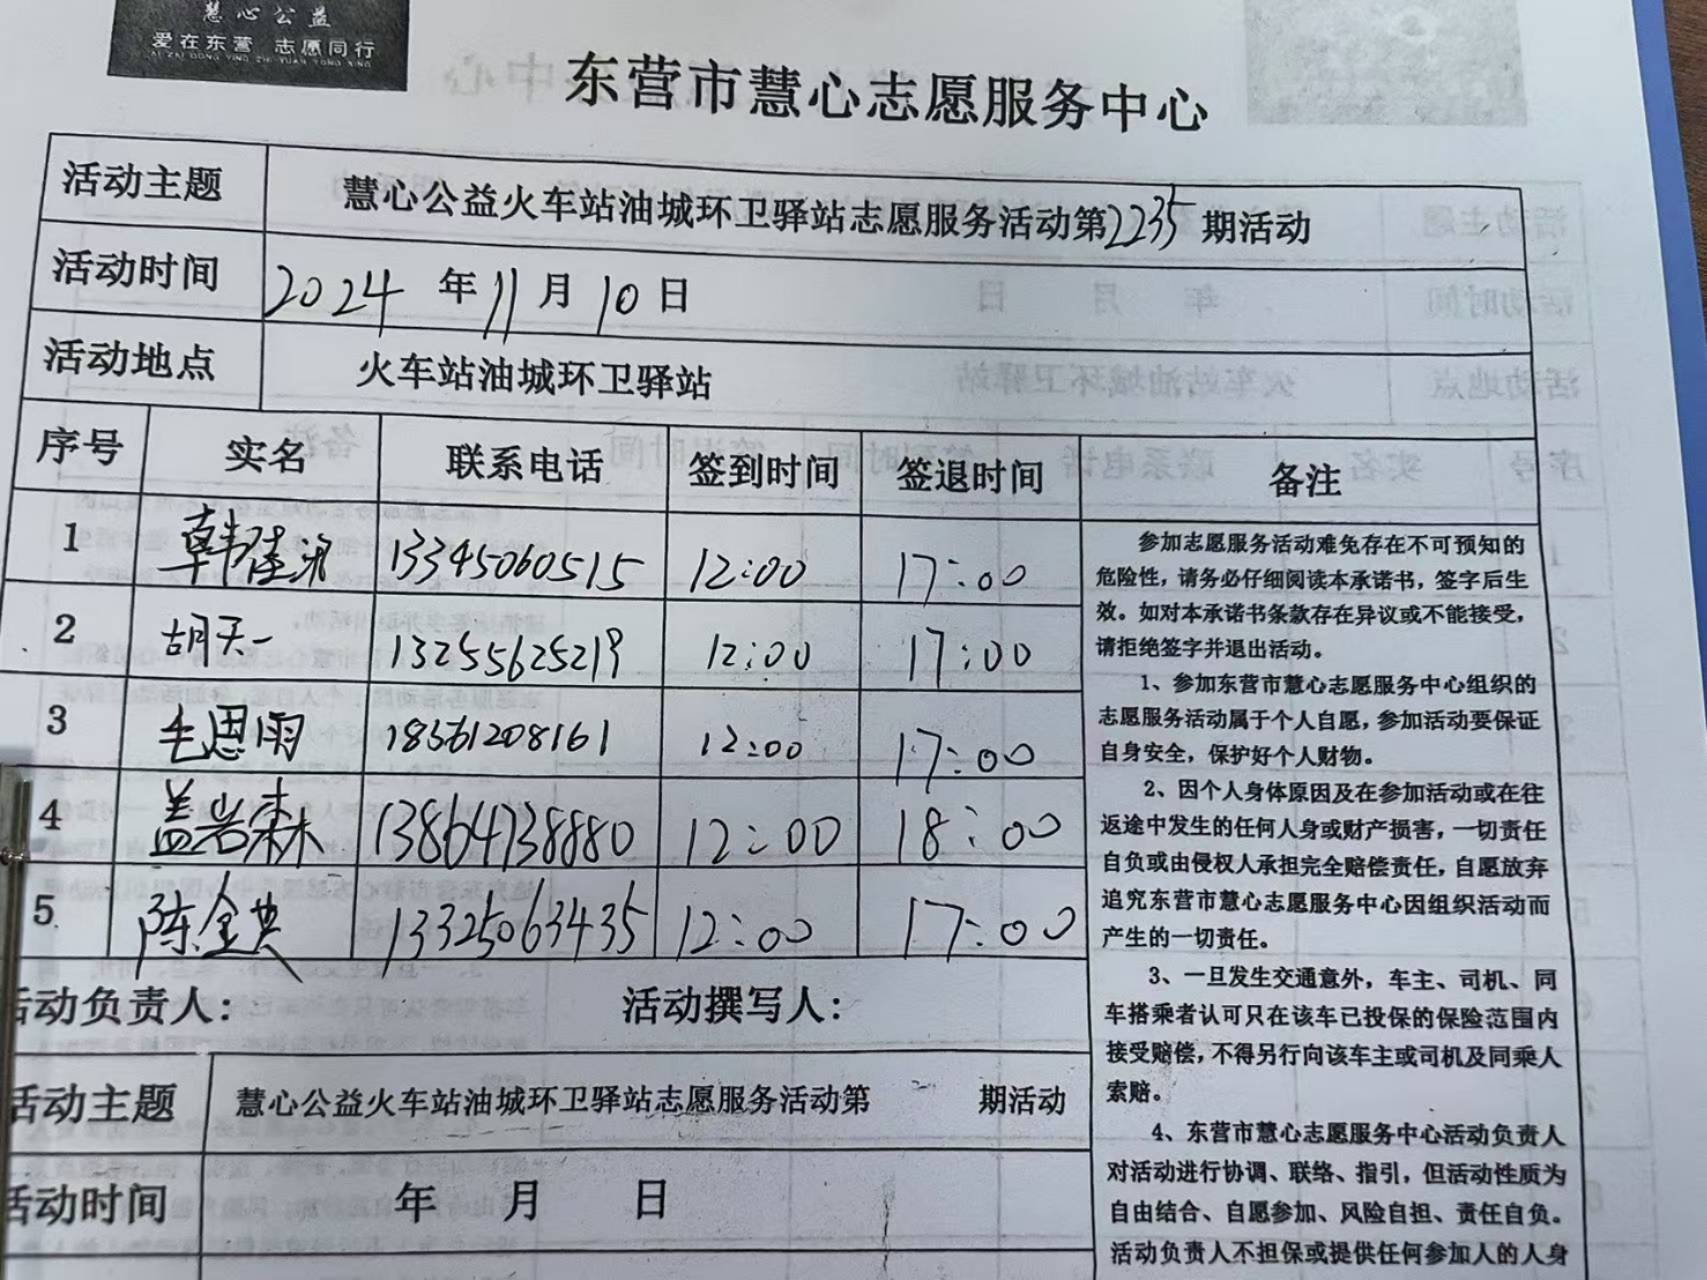 慧心公益
爱在东营 志愿同行
AI ZAI DONG YING ZHI YUAN TONG XING
东营市慧心志愿服务中心
活动主题 慧心公益火车站油城环卫驿站志愿服务活动第2235期活动
活动时间 2024年11月10日
活动地点 火车站油城环卫驿站
序号 实名 联系电话 签到时间 签退时间 备注
1 韩佳乐 13345060515 12:00 17:00
2 胡天一 13255625219 12:00 17:00
3 毛思雨 18561208161 12:00 17:00
4 盖岩森 13864738880 12:00 18:00
5 陈金英 13325063435 12:00 17:00
参加志愿服务活动难免存在不可预知的
危险性，请务必仔细阅读本承诺书，签字后生
效。如对本承诺书条款存在异议或不能接受，
请拒绝签字并退出活动。
1、参加东营市慧心志愿服务中心组织的
志愿服务活动属于个人自愿，参加活动要保证
自身安全，保护好个人财物。
2、因个人身体原因及在参加活动或在往
返途中发生的任何人身或财产损害，一切责任
自负或由侵权人承担完全赔偿责任，自愿放弃
追究东营市慧心志愿服务中心因组织活动而
产生的一切责任。
3、一旦发生交通意外，车主、司机、同
车搭乘者认可只在该车已投保的保险范围内
接受赔偿，不得另行向该车主或司机及同乘人
索赔。
4、东营市慧心志愿服务中心活动负责人
对活动进行协调、联络、指引，但活动性质为
自由结合、自愿参加、风险自担、责任自负。
活动负责人不担保或提供任何参加人的人身
活动负责人： 活动撰写人：
活动主题 慧心公益火车站油城环卫驿站志愿服务活动第 期活动
活动时间 年 月 日